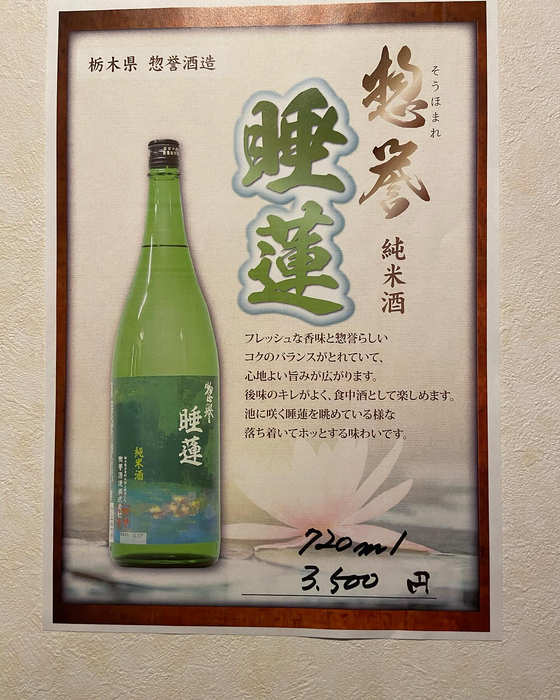 栃木県 惣誉酒造
惣誉
そうほまれ
睡蓮
純米酒
フレッシュな香味と惣誉らしい
コクのバランスがとれていて、
心地よい旨みが広がります。
後味のキレがよく、食中酒として楽しめます。
池に咲く睡蓮を眺めている様な
落ち着いてホッとする味わいです。
惣誉
睡蓮
純米酒
惣誉酒造株式会社
720ml
3,500 円